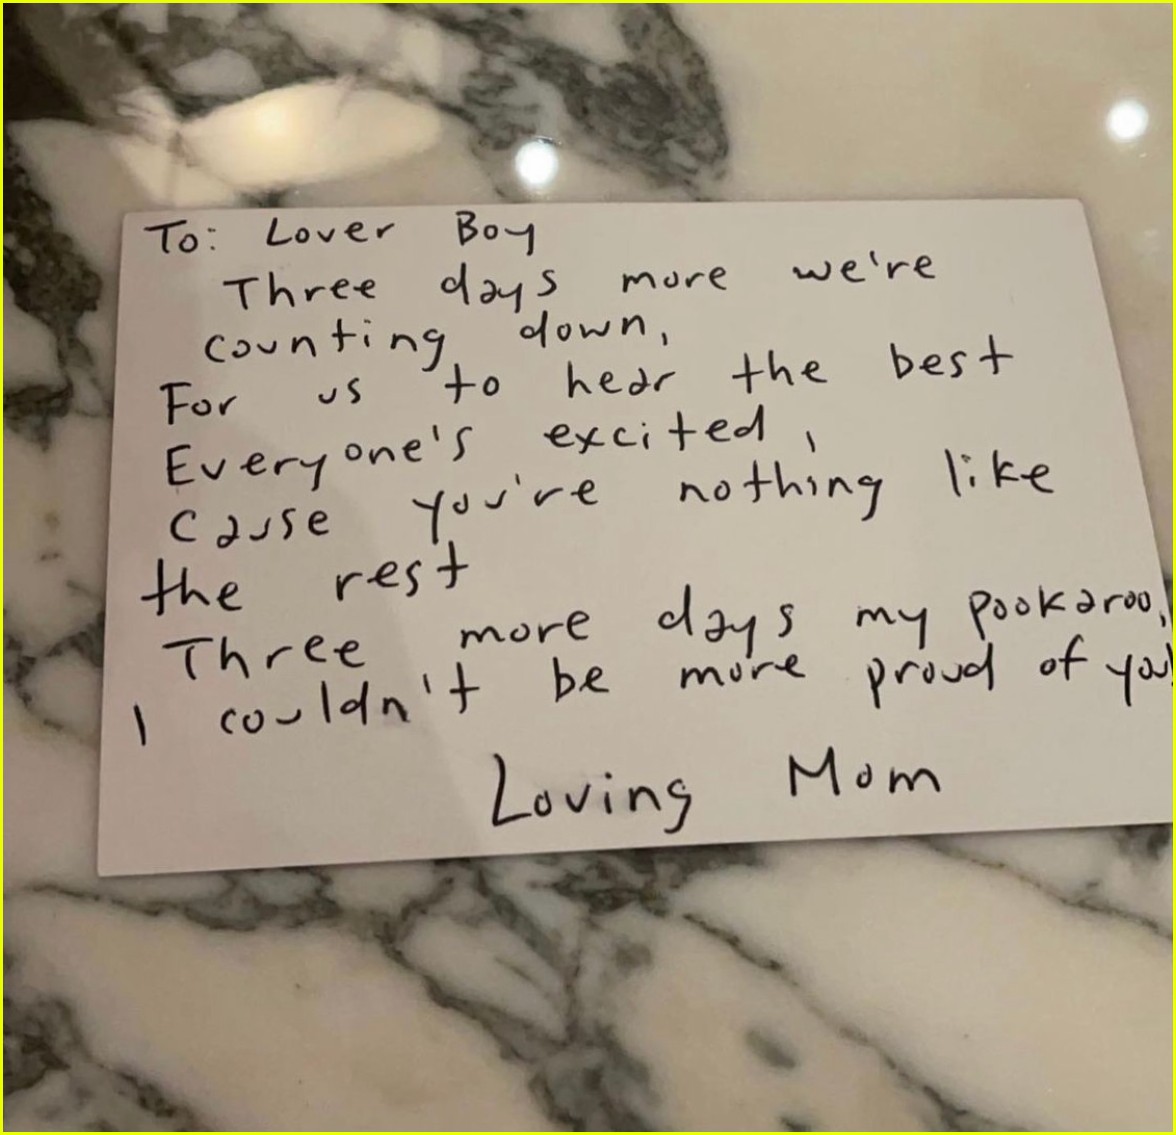 To: Lover Boy
Three days more we're
counting down,
For us to hear the best
Everyone's excited,
Cause you're nothing like
the rest
Three more days my pookaroo,
I couldn't be more proud of you!
Loving Mom